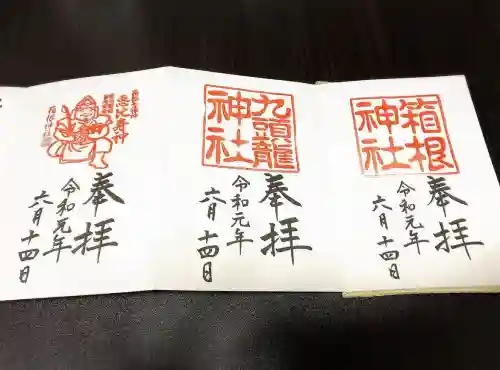 箱根
神社
奉拝
令和元年
六月十四日
九頭龍
神社
奉拝
令和元年
六月十四日
恵比寿神
箱根神社
奉拝
令和元年
六月十四日